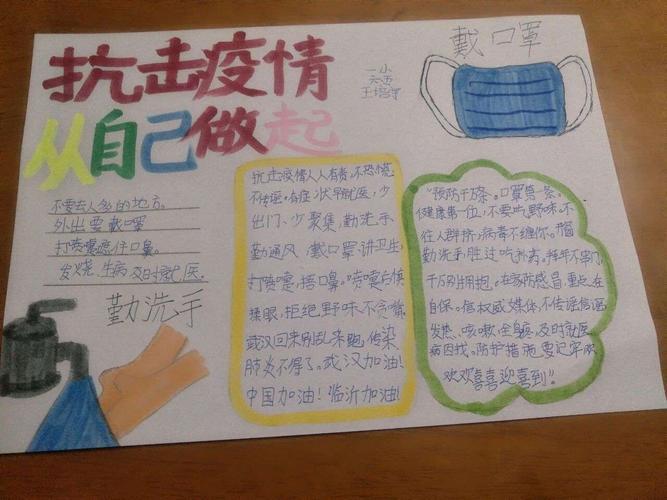 抗击疫情
从自己做起
一小
王培宇
戴口罩
不要去人多的地方。
外出要戴口罩
打喷嚏遮住口鼻。
发烧、生病及时就医。
勤洗手
抗击疫情人人有责,不恐慌
不传谣。有症状早就医,少
出门、少聚集,勤洗手
勤通风,戴口罩讲卫生
打喷嚏,捂口鼻。喷嚏勿慎
揉眼,拒绝野味不贪嘴
武汉回来别乱来跑,传染
肺炎不得了。武汉加油!
中国加油!临沂加油!
"预防千万条。口罩第一条,
健康第一位,不要吃野味。不
往人群挤,病毒不缠你。
勤洗手胜过吃补药。拜年不串门
千万别拥抱。在家防感冒,重点在
自保。信权威媒体,不传谣信谣
发热、咳嗽、及时就医
病因找。防护措施要记牢
欢欢喜喜迎喜到!"